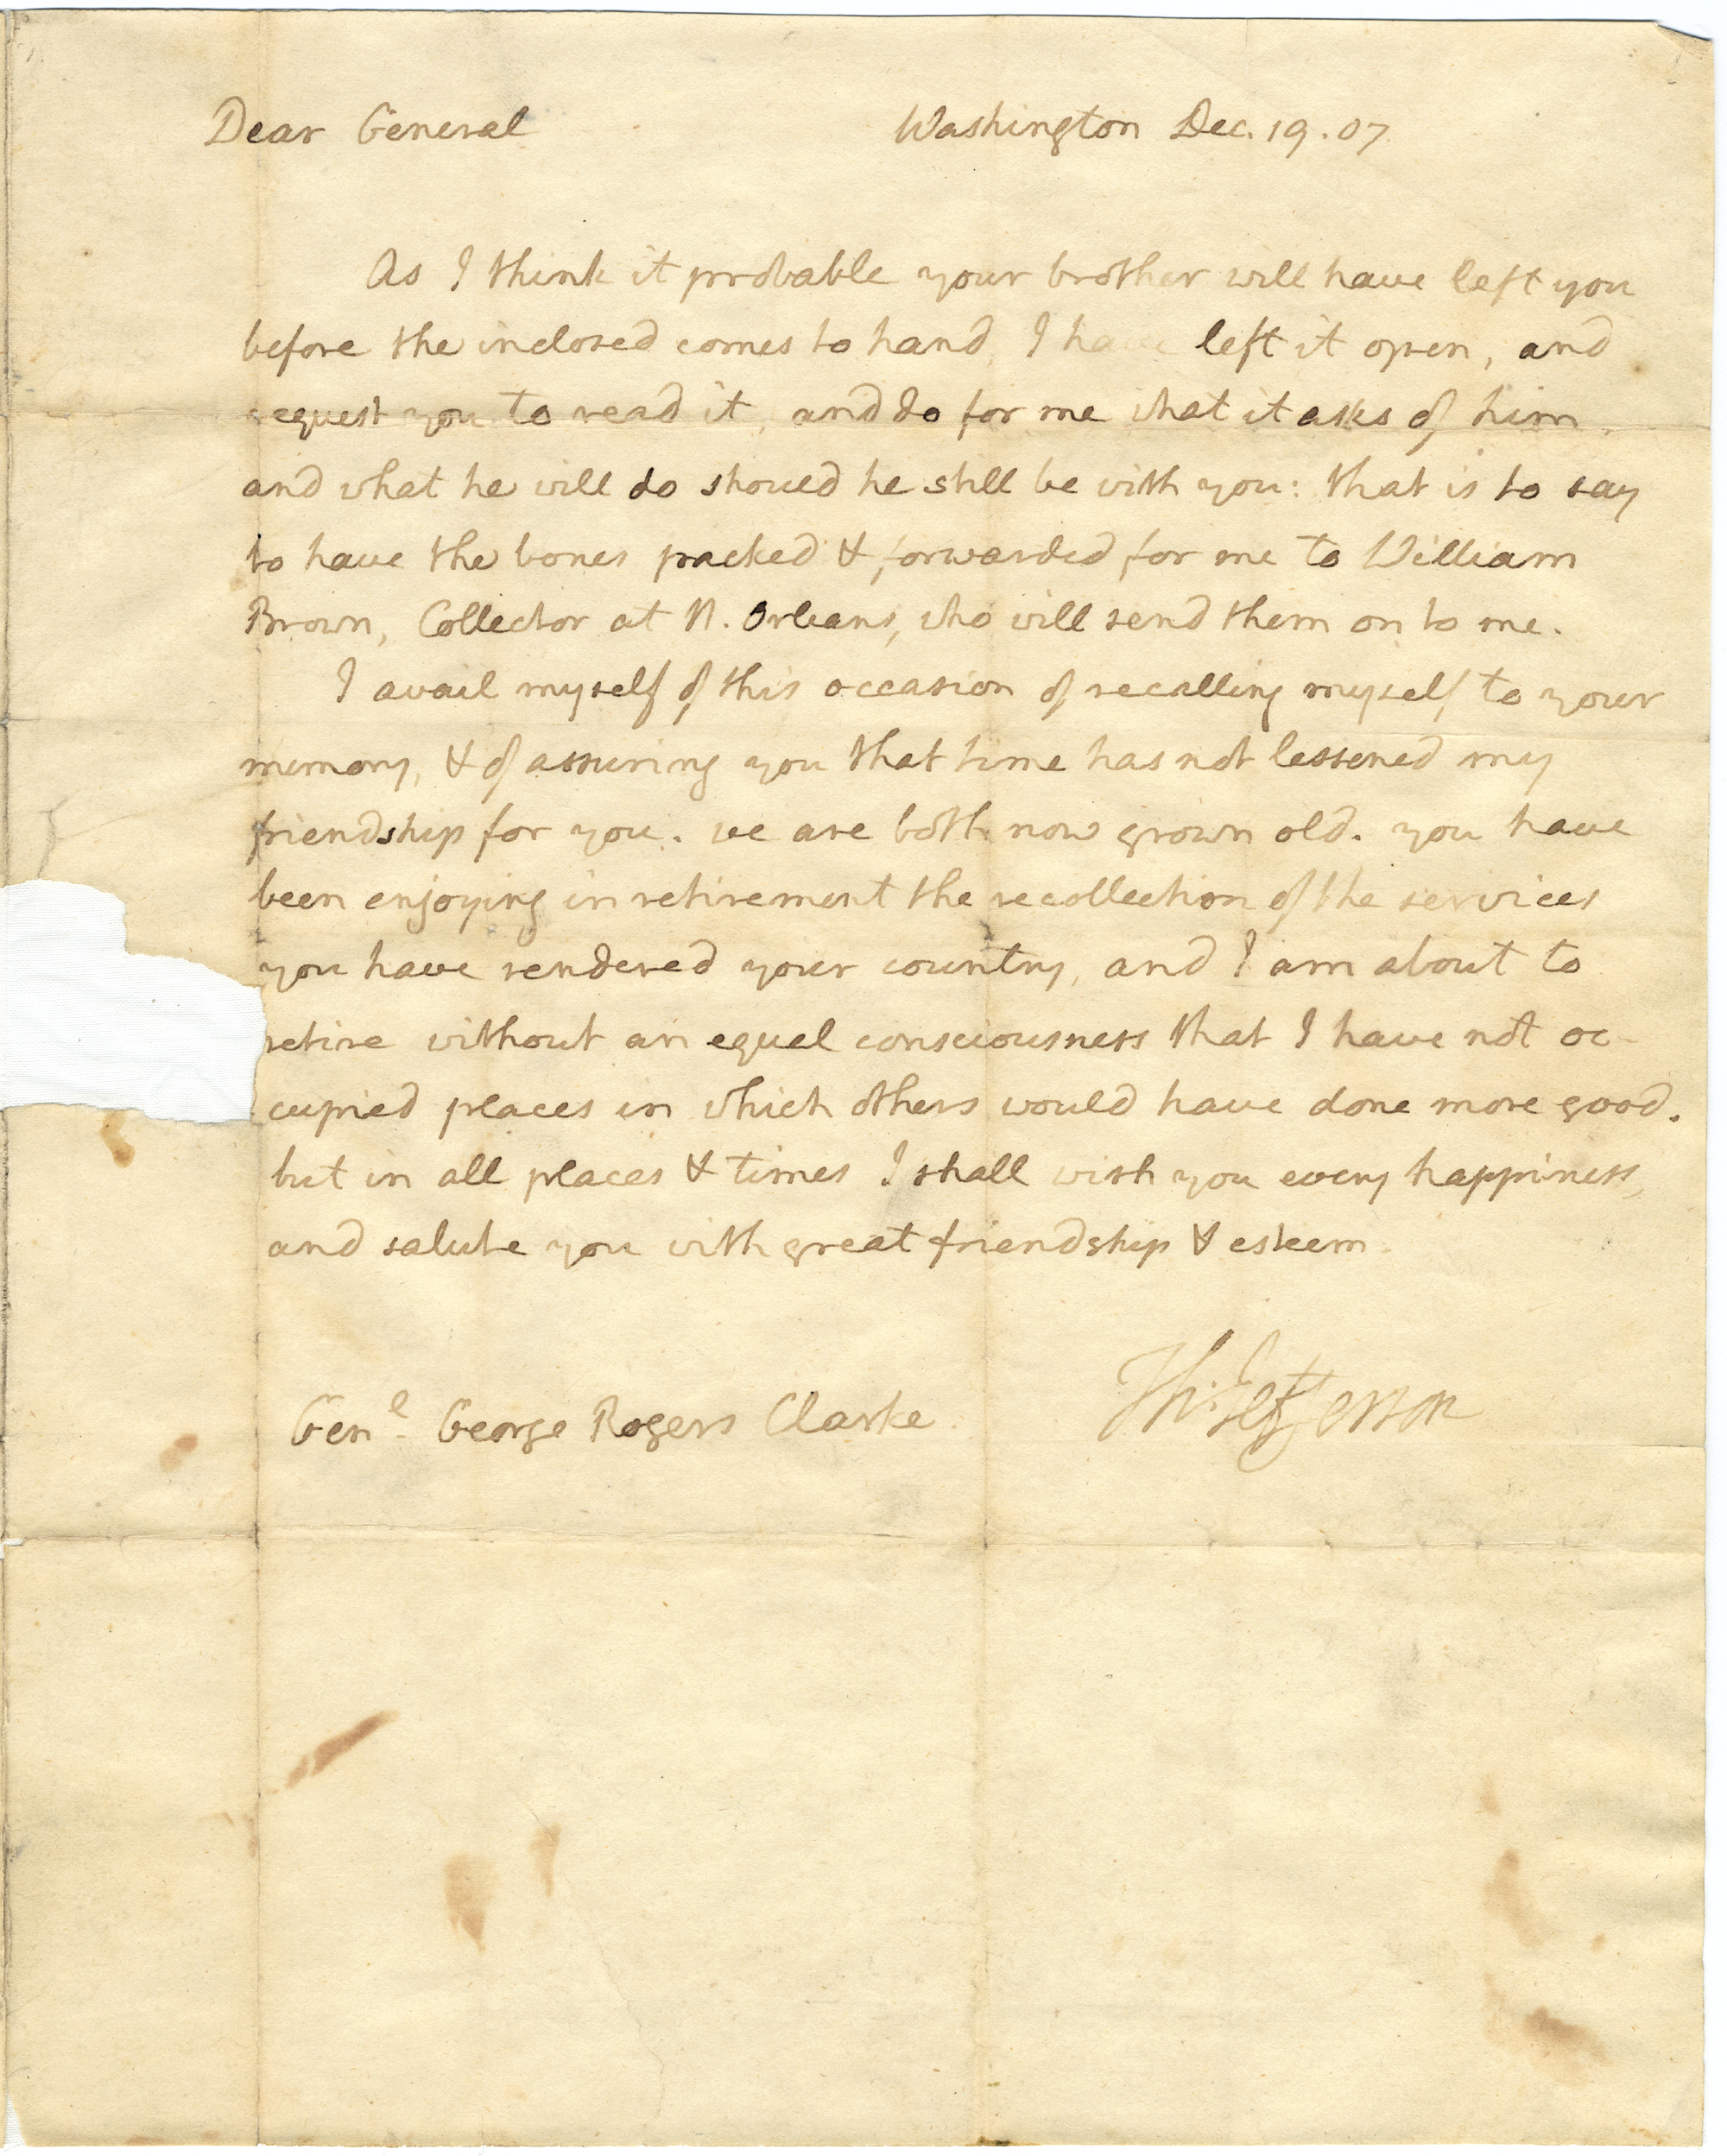 Dear General
Washington Dec. 19. 07.
As I think it probable your brother will have left you
before the inclosed comes to hand, I have left it open, and
request you to read it, and do for me what it asks of him,
and what he will do should he still be with you: that is to say
to have the bones packed & forwarded for me to William
Brown, Collector at N. Orleans, who will send them on to me.
I avail myself of this occasion of recalling myself to your
memory, & of assuring you that time has not lessened my
friendship for you. we are both now grown old. you have
been enjoying in retirement the recollection of the services
you have rendered your country, and I am about to
retire without an equal consciousness that I have not oc-
cupied places in which others would have done more good.
but in all places & times I shall wish you every happiness,
and salute you with great friendship & esteem.
Th: Jefferson
Genl. George Rogers Clarke